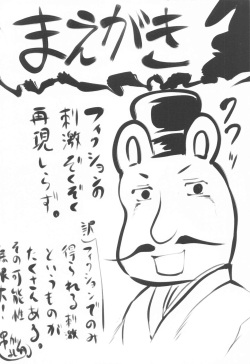 まえがき
フフッ
フィクションの
刺激ぞくぞく
再現しらず。
訳)フィクションでのみ
得られる刺激
というものが
たくさんある。
その可能性
無限大!